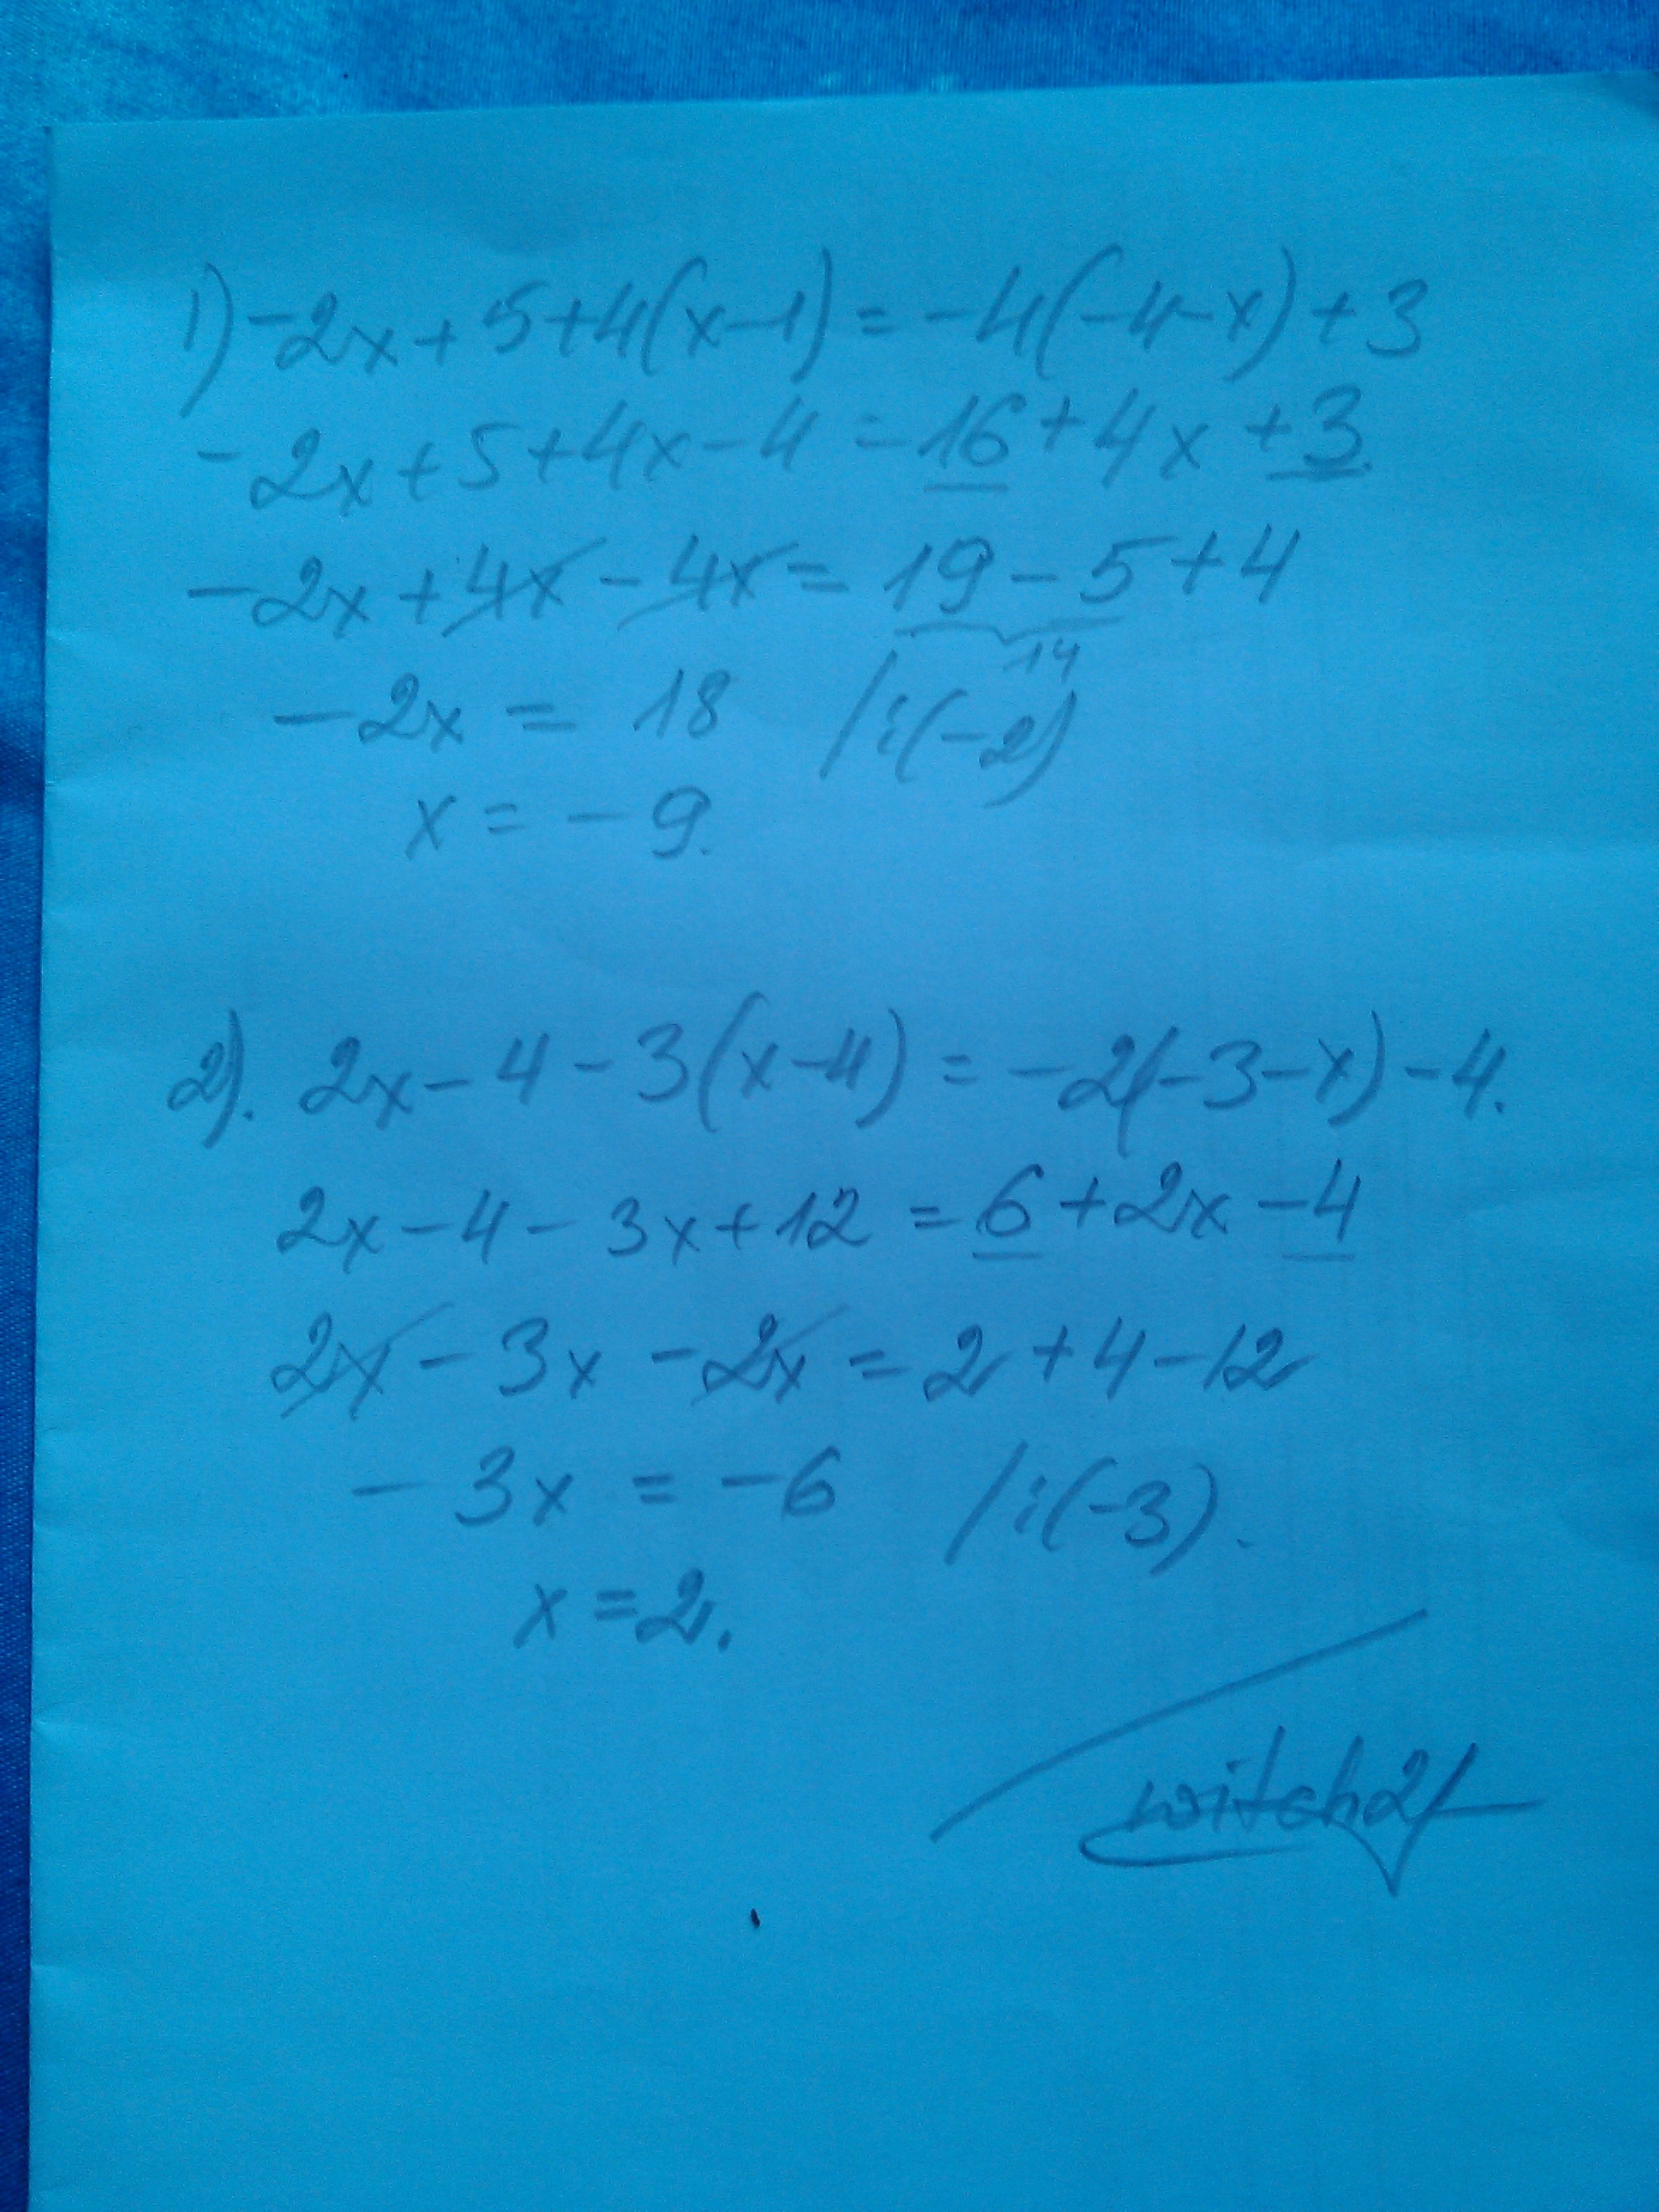 1) -2x + 5 + 4(x-1) = -4(-4-x) + 3
-2x + 5 + 4x - 4 = 16 + 4x + 3.
-2x + 4x - 4x = 19 - 5 + 4
14
-2x = 18 /:(-2)
x = -9.
2). 2x - 4 - 3(x-4) = -2(-3-x) - 4.
2x - 4 - 3x + 12 = 6 + 2x - 4
2x - 3x - 2x = 2 + 4 - 12
-3x = -6 /:(-3).
x = 2.
witch21